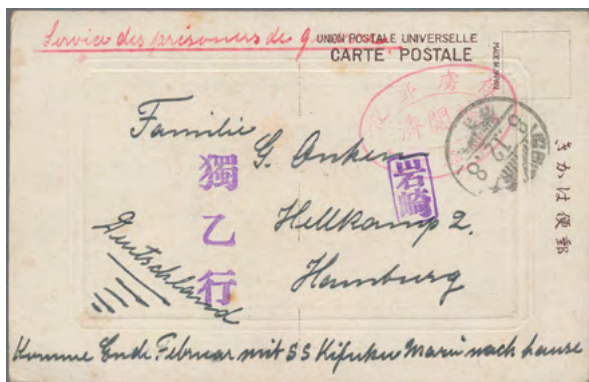 Service des prisonniers de guerre
UNION POSTALE UNIVERSELLE
CARTE POSTALE
MADE IN JAPAN
Familie
G. Anken
Hellkamp 2.
Hamburg
Deutschland
獨乙行
岩崎
きかは便郵
Komme Ende Februar mit SS Kifuku Maru nach hause